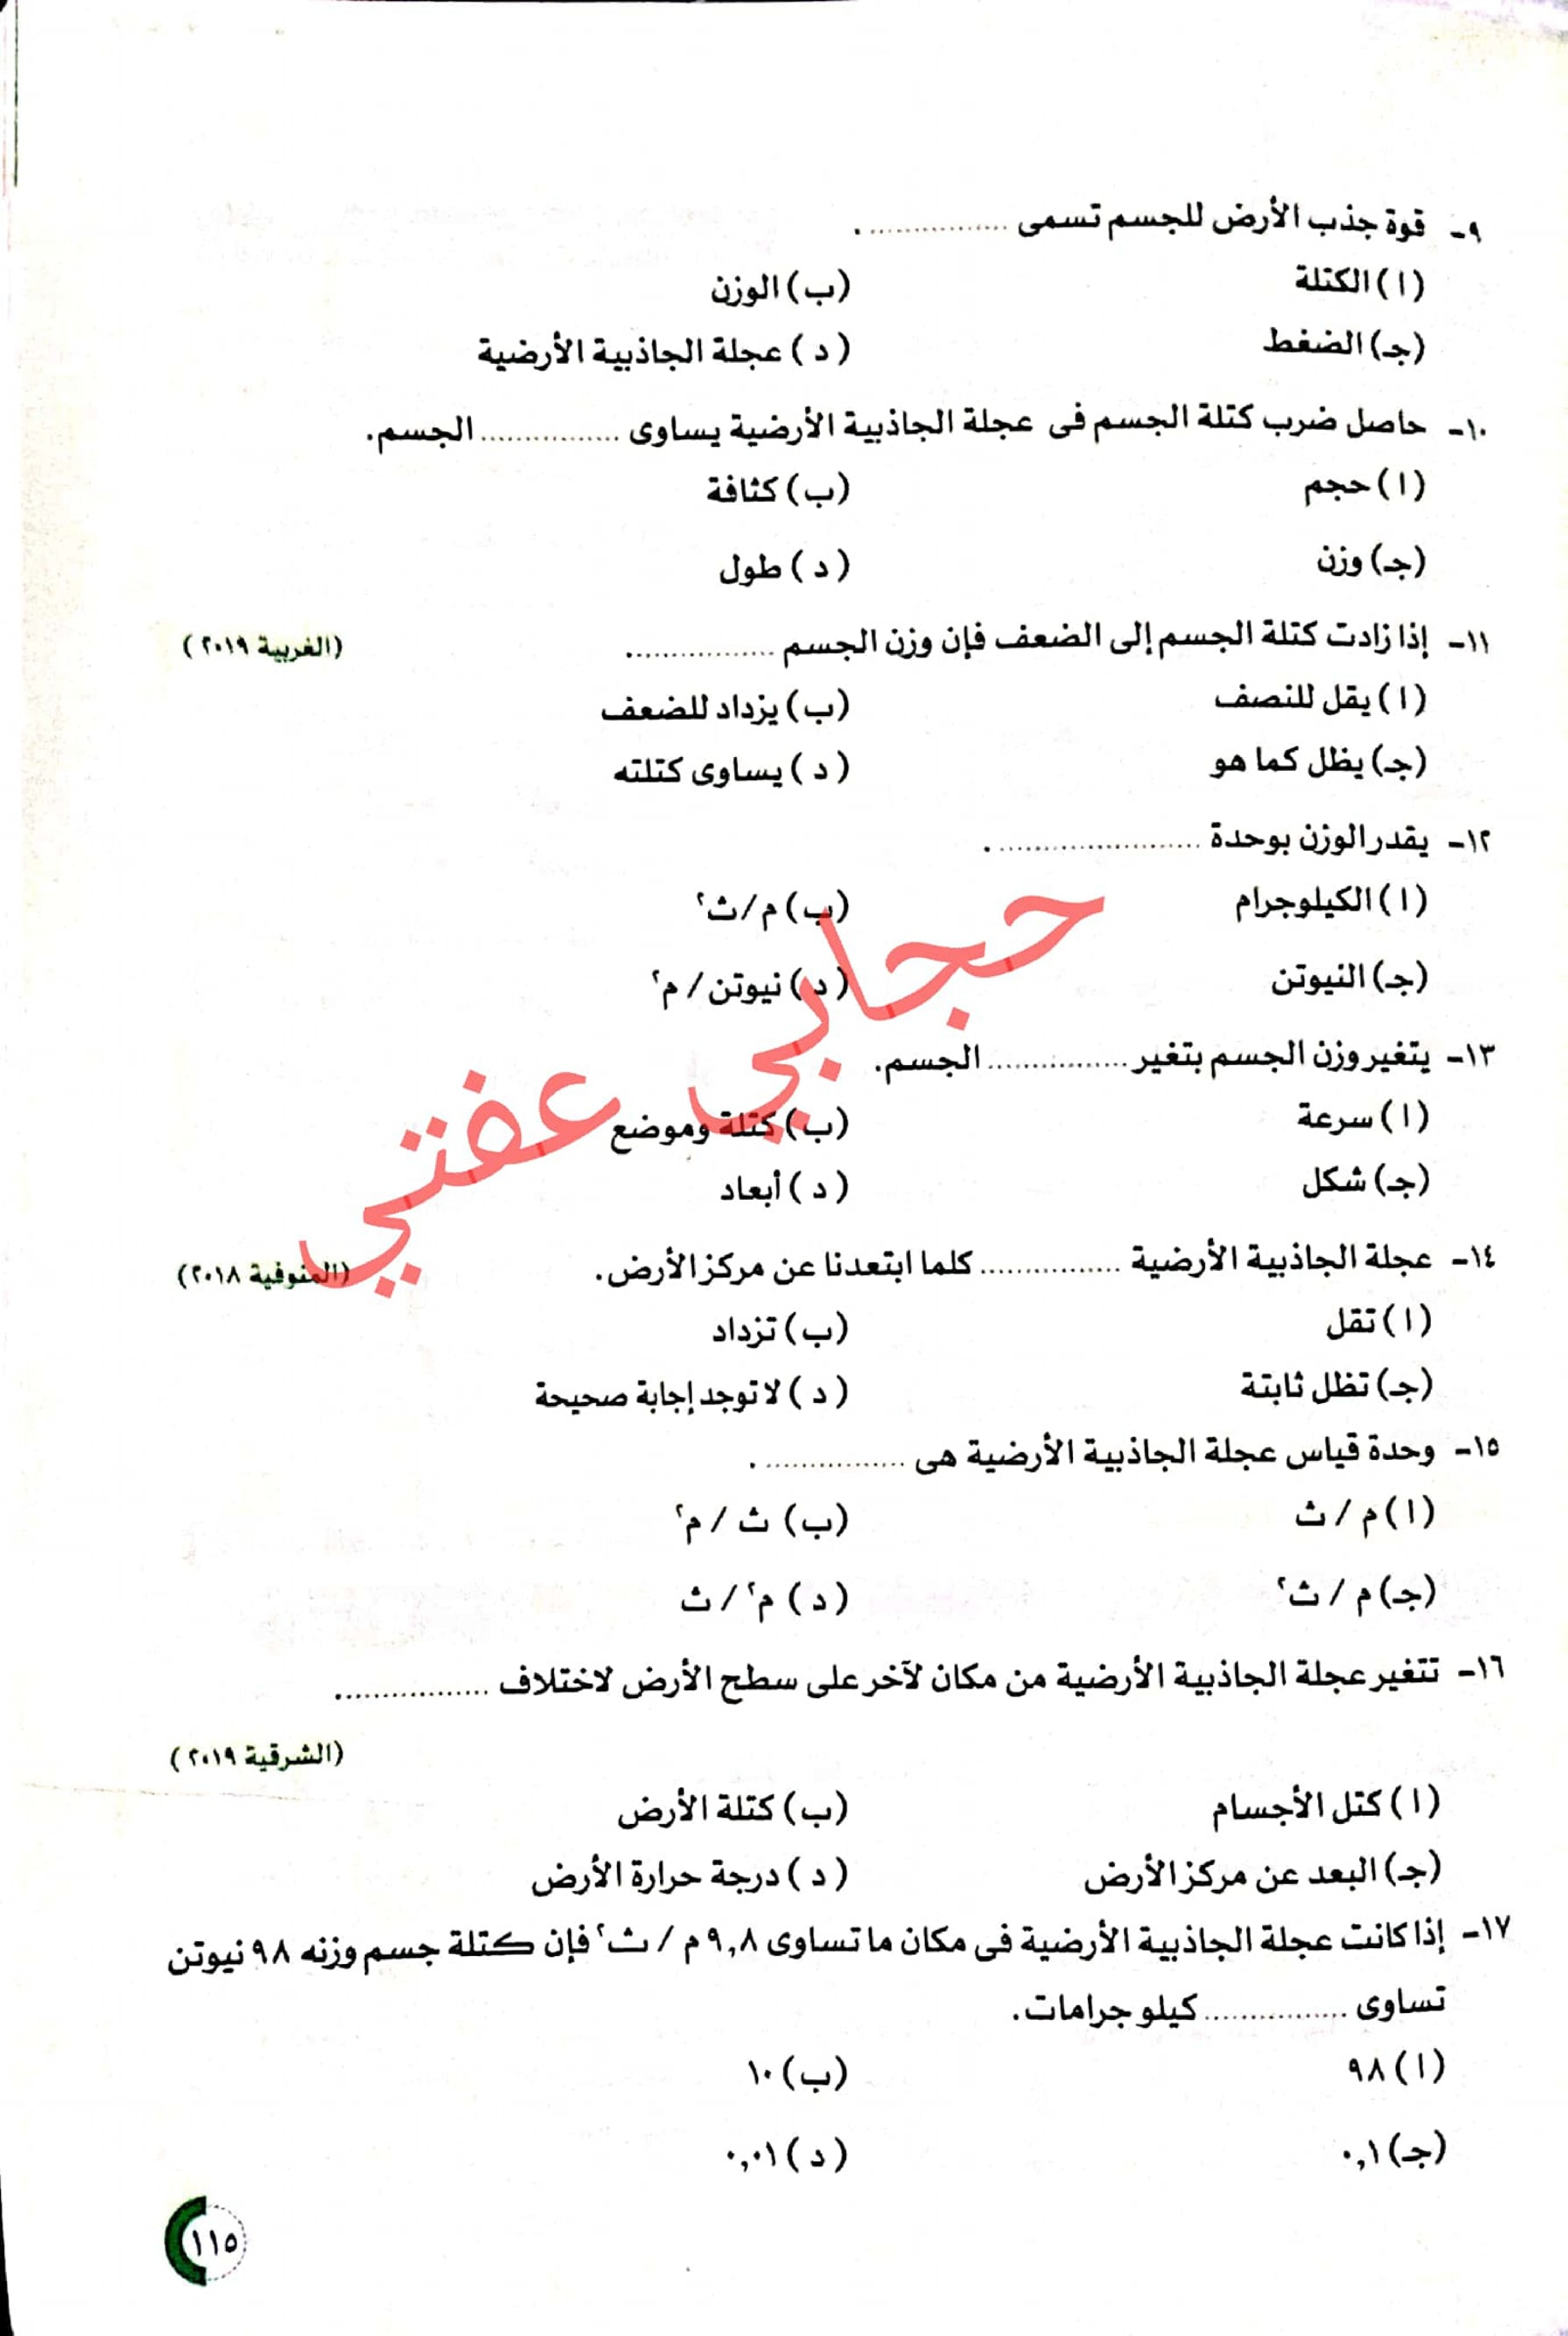 ٩- قوة جذب الأرض للجسم تسمى ................ .
(ا) الكتلة (ب) الوزن
(جـ) الضغط (د) عجلة الجاذبية الأرضية
١٠- حاصل ضرب كتلة الجسم فى عجلة الجاذبية الأرضية يساوى ................ الجسم.
(ا) حجم (ب) كثافة
(جـ) وزن (د) طول
١١- إذا زادت كتلة الجسم إلى الضعف فإن وزن الجسم ................. (الغربية ٢٠١٩)
(ا) يقل للنصف (ب) يزداد للضعف
(جـ) يظل كما هو (د) يساوى كتلته
١٢- يقدر الوزن بوحدة ....................... .
(ا) الكيلوجرام (ب) م/ث٢
(جـ) النيوتن (د) نيوتن/ م٢
١٣- يتغير وزن الجسم بتغير ................ الجسم.
(ا) سرعة (ب) كتلة وموضع
(جـ) شكل (د) أبعاد
١٤- عجلة الجاذبية الأرضية ................ كلما ابتعدنا عن مركز الأرض. (المنوفية ٢٠١٨)
(ا) تقل (ب) تزداد
(جـ) تظل ثابتة (د) لا توجد إجابة صحيحة
١٥- وحدة قياس عجلة الجاذبية الأرضية هى ................ .
(ا) م / ث (ب) ث / م٢
(جـ) م / ث٢ (د) م٢ / ث
١٦- تتغير عجلة الجاذبية الأرضية من مكان لآخر على سطح الأرض لاختلاف .................
(الشرقية ٢٠١٩)
(ا) كتل الأجسام (ب) كتلة الأرض
(جـ) البعد عن مركز الأرض (د) درجة حرارة الأرض
١٧- إذا كانت عجلة الجاذبية الأرضية فى مكان ما تساوى ٩,٨ م / ث٢ فإن كتلة جسم وزنه ٩٨ نيوتن
تساوى ................ كيلو جرامات.
(ا) ٩٨ (ب) ١٠
(جـ) ٠,١ (د) ٠,٠١
١١٥
حجابي عفتي